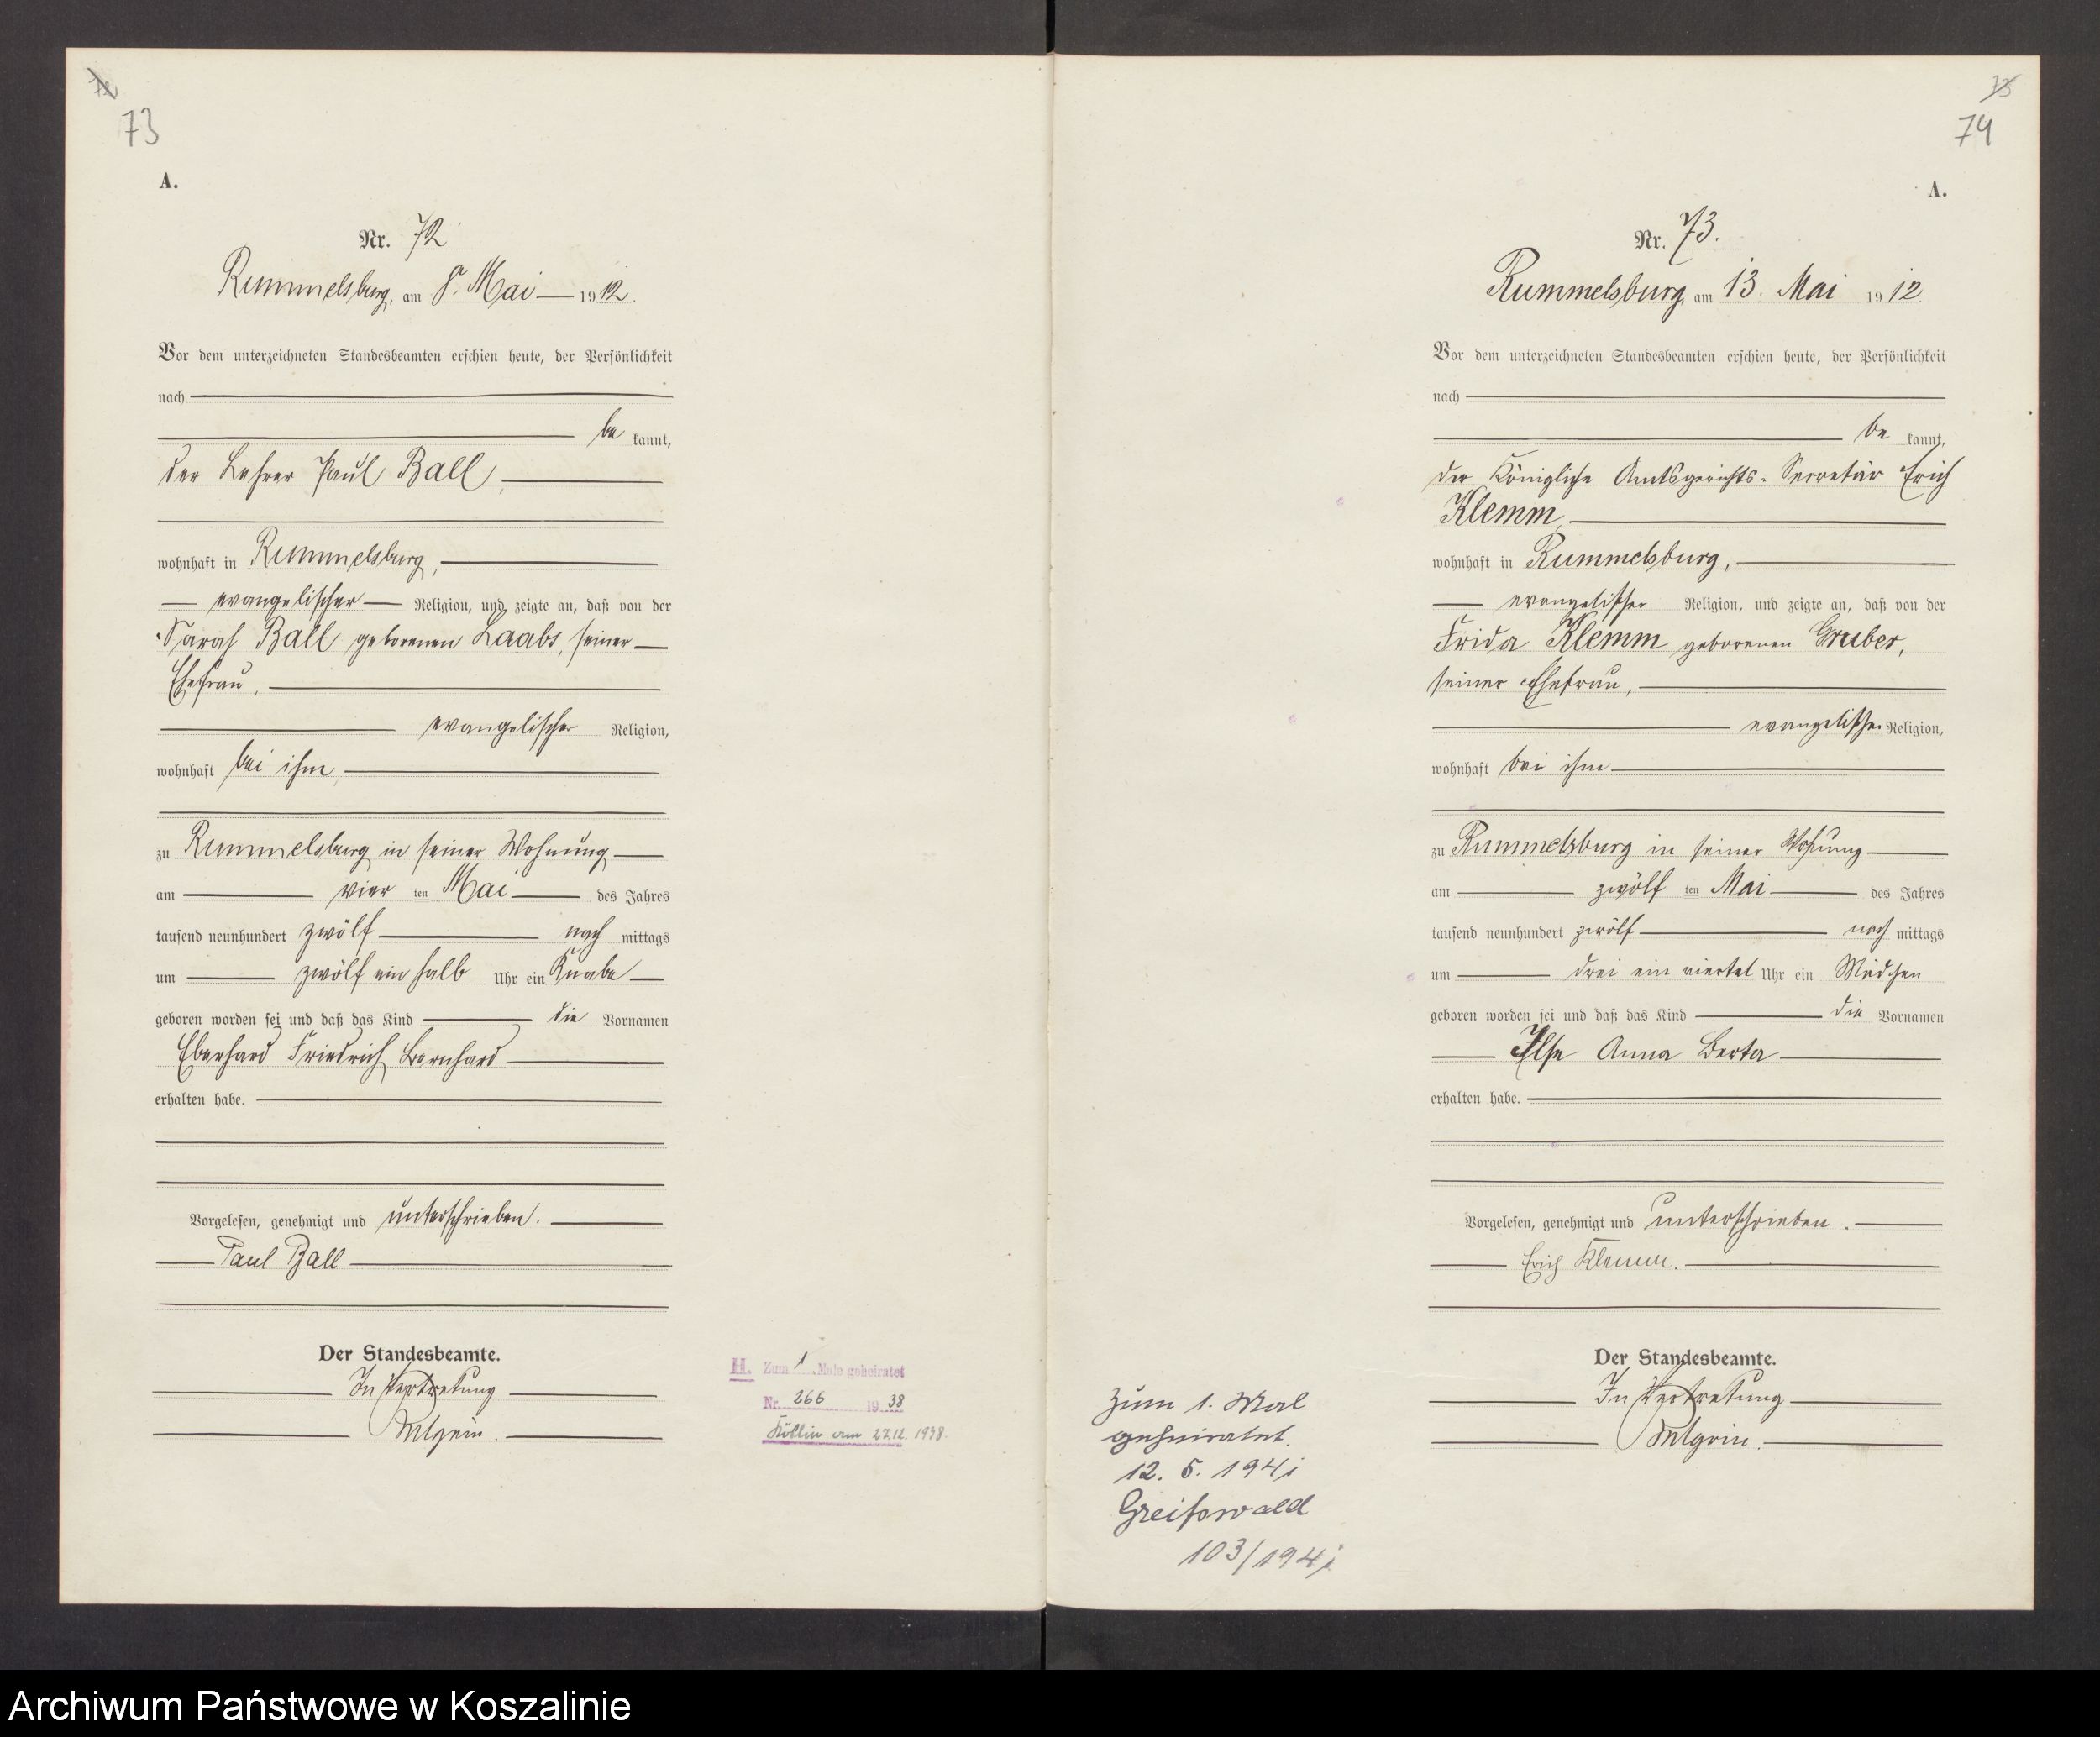 73
A.
Nr. 72
Rummelsburg, am 8. Mai 1912.
Vor dem unterzeichneten Standesbeamten erschien heute, der Persönlichkeit
nach
be kannt,
der Lehrer Paul Ball,
wohnhaft in Rummelsburg,
evangelischer Religion, und zeigte an, daß von der
Sarah Ball geborenen Laabs, seiner
Ehefrau,
evangelischer Religion,
wohnhaft bei ihm
zu Rummelsburg in seiner Wohnung
am vier ten Mai des Jahres
tausend neunhundert zwölf nach mittags
um zwölf ein halb Uhr ein Knabe
geboren worden sei und daß das Kind die Vornamen
Eberhard Friedrich Bernhard
erhalten habe.
Vorgelesen, genehmigt und unterschrieben.
Paul Ball
Der Standesbeamte.
In Vertretung
H. Zum 1. Male geheiratet
Nr. 266 1938
Köslin am 27.12.1938.
74
A.
Nr. 73.
Rummelsburg, am 13. Mai 1912
Vor dem unterzeichneten Standesbeamten erschien heute, der Persönlichkeit
nach
be kannt,
der Königliche Amtsgerichts-Secretär Erich
Klemm,
wohnhaft in Rummelsburg,
evangelischer Religion, und zeigte an, daß von der
Frida Klemm geborenen Gruber,
seiner Ehefrau,
evangelischer Religion,
wohnhaft bei ihm
zu Rummelsburg in seiner Wohnung
am zwölf ten Mai des Jahres
tausend neunhundert zwölf nach mittags
um drei ein viertel Uhr ein Mädchen
geboren worden sei und daß das Kind die Vornamen
Ilse Anna Berta
erhalten habe.
Vorgelesen, genehmigt und unterschrieben.
Erich Klemm.
Der Standesbeamte.
In Vertretung
Zum 1. Mal
geheiratet.
12. 5. 1941
Greifswald
103/1941
Archiwum Państwowe w Koszalinie